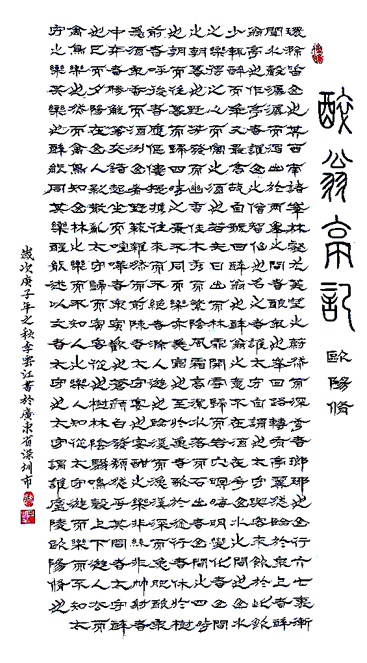 醉翁亭記
歐陽脩
環滁皆山也其西南諸峯林壑尤美望之蔚然而深秀者瑯琊也山行六七里漸
聞水聲潺潺而瀉出於兩峯之間者釀泉也峯回路轉有亭翼然臨於泉上者醉
翁亭也作亭者誰山之僧智仙也名之者誰太守自謂也太守與客來飲於此飲
少輒醉而年又最高故自號曰醉翁也醉翁之意不在酒在乎山水之間也山水
之樂得之心而寓之酒也若夫日出而林霏開雲歸而巖穴暝晦明變化者山間
之朝暮也野芳發而幽香佳木秀而繁陰風霜高潔水落而石出者山間之四時
也朝而往暮而歸四時之景不同而樂亦無窮也至於負者歌於途行者休於樹
前者呼後者應傴僂提攜往來而不絕者滁人遊也臨溪而漁溪深而魚肥釀泉
為酒泉香而酒洌山肴野蔌雜然而前陳者太守宴也宴酣之樂非絲非竹射者
中弈者勝觥籌交錯起坐而喧嘩者衆賓歡也蒼顏白髮頹然乎其間者太守醉
也已而夕陽在山人影散亂太守歸而賓客從也樹林陰翳鳴聲上下遊人去而
禽鳥樂也然而禽鳥知山林之樂而不知人之樂人知從太守遊而樂而不知太
守之樂其樂也醉能同其樂醒能述以文者太守也太守謂誰廬陵歐陽脩也
歲次庚子年之秋李雲江書於廣東省深圳市